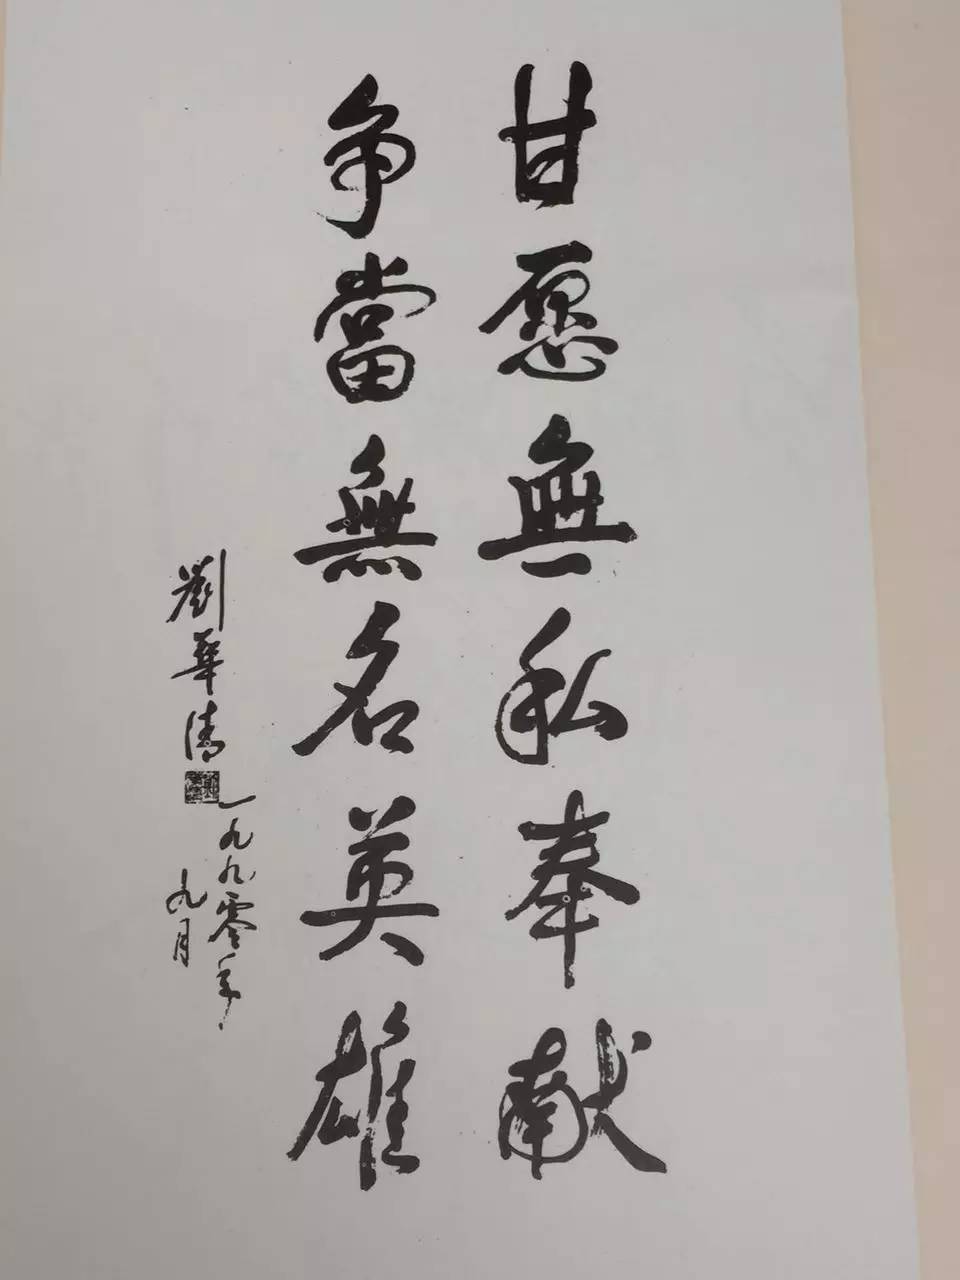 甘愿無私奉献
争當無名英雄
劉華清
一九九零年
九月